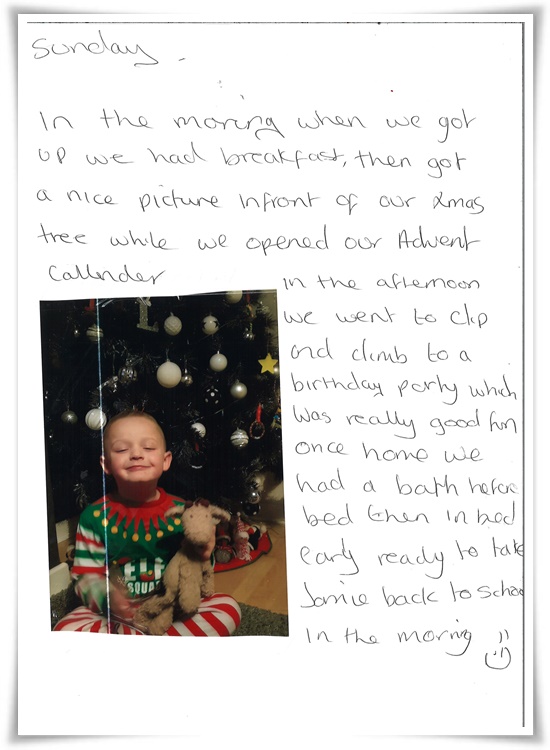 Sunday -
In the moring when we got
up we had breakfast, then got
a nice picture infront of our Xmas
tree while we opened our Advent
Callender
in the afternoon
we went to clip
and climb to a
birthday party which
was really good fun
once home we
had a bath before
bed then in bed
early ready to take
Jamie back to schoo
In the moring :)
ELF
SQUA